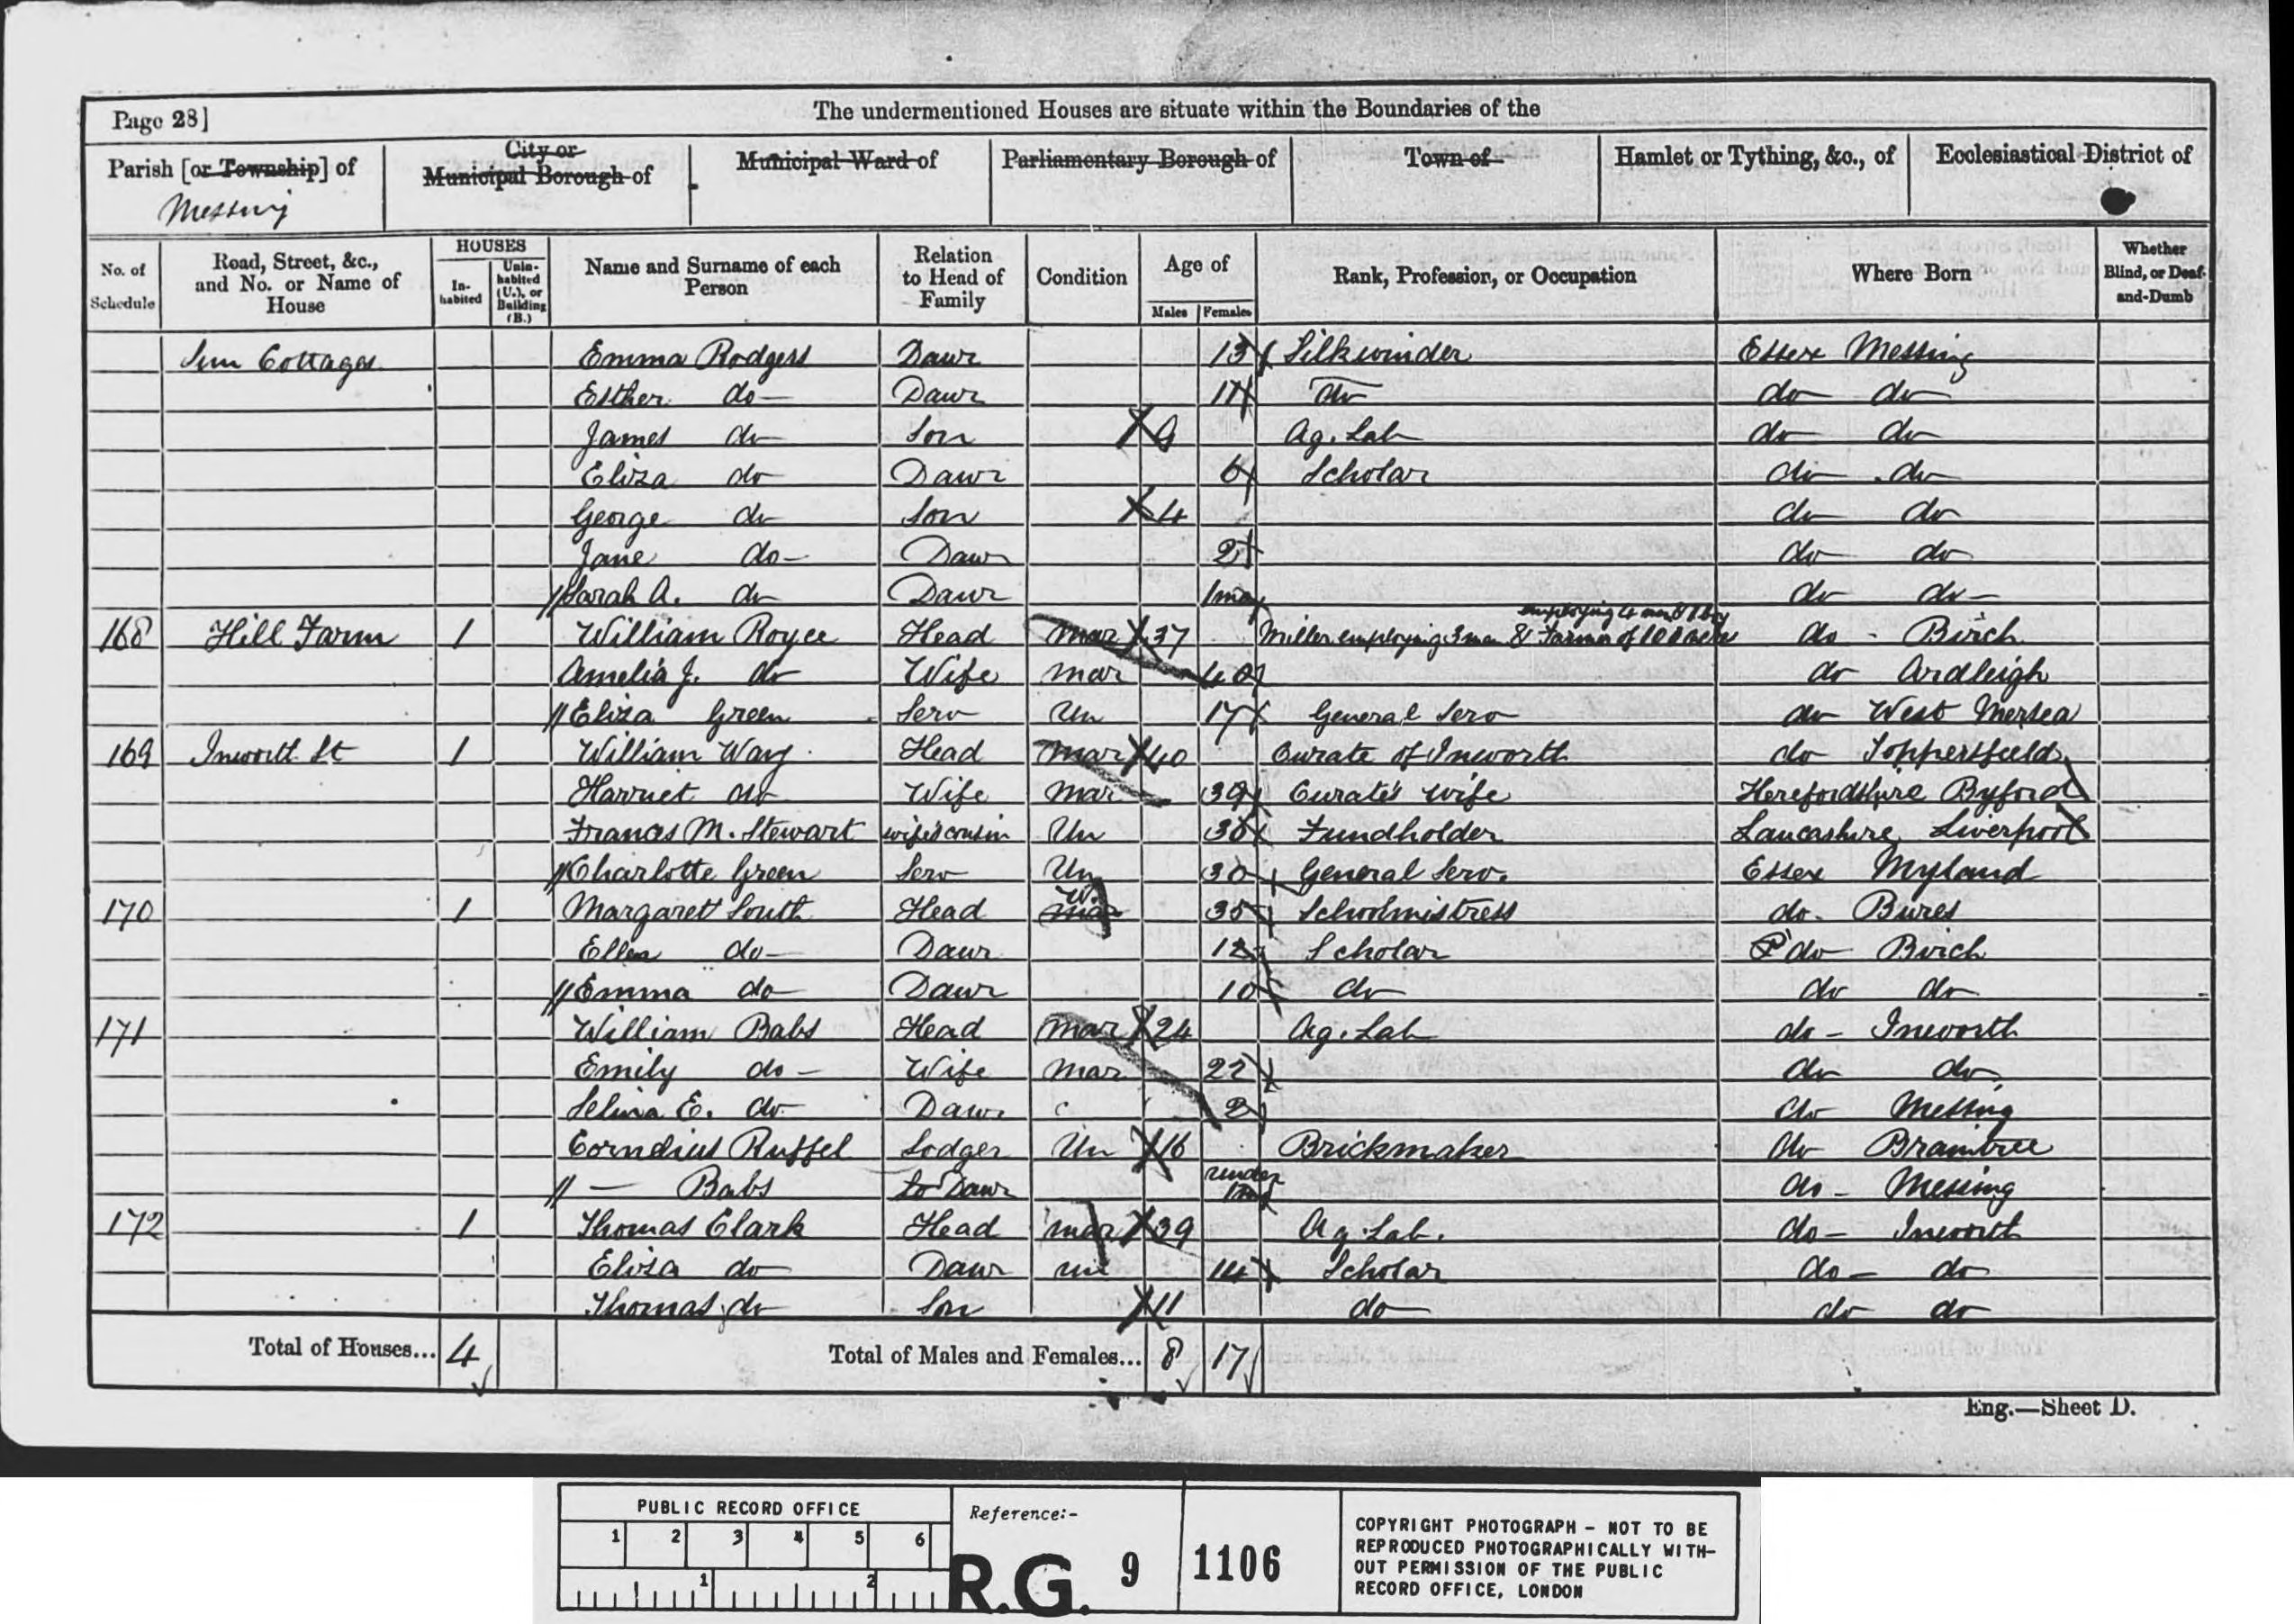 Page 28]
The undermentioned Houses are situate within the Boundaries of the
Parish [or Township] of
Messing
City or
Municipal Borough of
Municipal Ward of
Parliamentary Borough of
Town of
Hamlet or Tything, &c., of
Ecclesiastical District of
No. of
Schedule
Road, Street, &c.,
and No. or Name of
House
HOUSES
In-
habited
Unin-
habited
(U.), or
Building
(B.)
Name and Surname of each
Person
Relation
to Head of
Family
Condition
Age of
Males
Females
Rank, Profession, or Occupation
Where Born
Whether
Blind, or Deaf-
and-Dumb
Cottages Emma Rodgers Dawr 13 Silkwinder Essex Messing
Esther do Dawr 11 do do do
James do Son 9 Ag. Lab do do
Eliza do Dawr 6 Scholar do do
George do Son 4 do do
Jane do Dawr 2 do do
Sarah A. do Dawr 1mo do do
employing 4 men & 1 boy
168 Hill Farm 1 William Royce Head Mar 37 Miller employing 3 men & Farmer of do Birch
Amelia J. do Wife Mar 40 do Ardleigh
Eliza Green Serv Un 17 General Serv do West Mersea
169 Inworth St 1 William Way Head Mar 40 Curate of Inworth do Toppersfield
Harriet do Wife Mar 39 Curate's wife Herefordshire Byford
Frances M. Stewart wife's cousin Un Fundholder Lancashire Liverpool
Charlotte Green Serv Un 30 General Serv. Essex Myland
W.
170 1 Margarett South Head Mar 35 Schoolmistress do Bures
Ellen do Dawr 12 Scholar do Birch
Emma do Dawr 10 do do do
171 William Babs Head Mar 24 Ag. Lab do Inworth
Emily do Wife Mar 22 do do
Selina E. do Dawr 2 do Messing
Cornelius Ruffel Lodger Un 16 Brickmaker do Braintree
under
— Babs to Dawr 1mo do Messing
172 1 Thomas Clark Head Mar 39 Ag. Lab. do Inworth
Eliza do Dawr un 14 Scholar do do
Thomas do Son 11 do do do
Total of Houses... 4
Total of Males and Females... 8 17
Eng.—Sheet D.
PUBLIC RECORD OFFICE
1 2 3 4 5 6
1 2
Reference:-
R.G. 9
1106
COPYRIGHT PHOTOGRAPH - NOT TO BE
REPRODUCED PHOTOGRAPHICALLY WITH-
OUT PERMISSION OF THE PUBLIC
RECORD OFFICE, LONDON